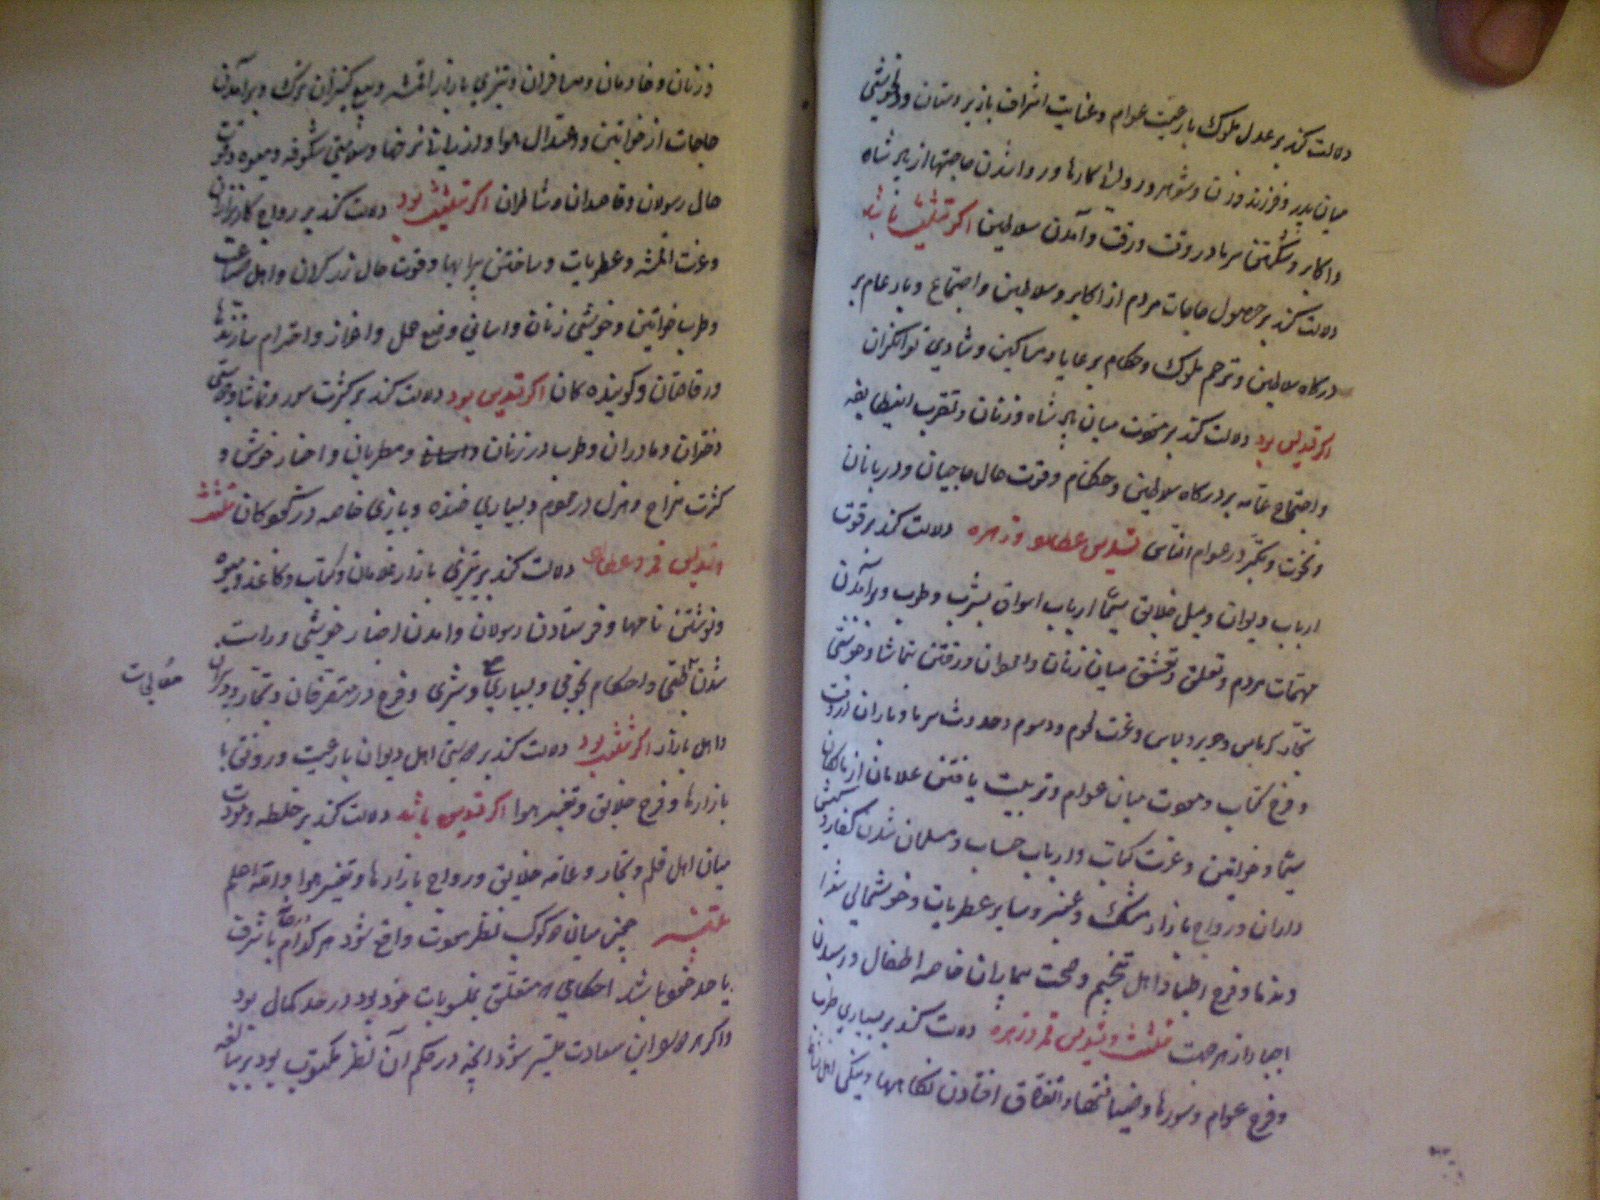 دلالت کند بر عدل ملوک با رعیت عوام و عنایت اشراف با زیردستان و خوشی
میان پدر و فرزند و زن و شوهر و روانی کارها و روا شدن حاجتها از پادشاه
و اکابر و شکستن سرما در وقت و رقت و آمدن سلاطین اکر تثلیث باشد
دلالت کند بر حصول حاجات مردم از اکابر و سلاطین و اجتماع و بار عام بر
درکاه سلاطین و ترحم ملوک و حکام بر رعایا و مساکین و شادی توانکران
اکر تسدیس بود دلالت کند بر میان پادشاه و زنان و تقرب این طایفه
و اجتماع عامه بر درکاه سلاطین و حکام و قوت حال حاجبان و دربانان
و نخوت و تکبر در عوام الناس تسدیس عطارد و زهره دلالت کند بر قوت
ارباب دیوان و میل خلایق سیما ارباب اسواق بشرب و طرب و برآمدن
مهمات مردم و تعلق و تعشق میان زنان و اخوان و رفتن بتماشا و خوشی
تجار کرباس و حریر و لباس و عزت لحوم و دسوم و حدوث سرما و باران در وقت
و فرح کتاب و میان عوام و تربیت یافتن غلامان از مالکان
سیما و خواتین و عزت کتاب و ارباب حساب و مسلمان شدن کفار و
داران و رواج بازار مشک و عنبر و سایر عطریات و خوشحالی شعرا
و ندما و فرح اطبا و اهل تنجیم و صحت بیماران خاصه اطفال و رسیدن
اخبار از هر جهت تثلیث و تسدیس قمر و زهره دلالت کند بر بسیاری طرب
و فرح عوام و سورها و ضیافتها و اتفاق افتادن نکاحها و نیکی اهل نشاط
و زنان و خادمان و مسافران و تیزی بازار اقمشه و بیع کنیزان ترک و برآمدن
حاجات از خواتین و اعتدال هوا و ارزانی نرخها و سلامتی شکوفه و میوه و قوت
حال رسولان و قاصدان و شاطران اکر تثلیث بود دلالت کند بر رواج کار بزازان
و عزت اقمشه و عطریات و ساختن پیرایها و قوت حال زرکران و اهل صناعت
و طرب خواتین و خوشی زنان و آسانی وضع حمل و اعزاز و احترام سازندها
و رقاصان و کویندکان اکر تسدیس بود دلالت کند بر کثرت سور و تماشا و خوشی
دختران و مادران و طرب در زنان و مطربان و اخبار خوش و
کثرت مزاح و هزل در مردم و بسیاری خنده و بازی خاصه در کودکان تثلیث
و تسدیس قمر و عطارد دلالت کند بر تیزی بازار غلامان و کتاب و کاغذ و میوه
و نوشتن نامها و فرستادن رسولان و آمدن اخبار خوشی و راست
شدن و احکام نجومی و بسیاری بیع و شری و فرح در متفرقان و تجار و دبیران
مکاتبات
و اهل بازار اکر تثلیث بود دلالت کند بر راستی اهل دیوان با رعیت و رونق
بازارها و فرح خلایق و تغییر هوا اکر تسدیس باشد دلالت کند بر خلطه و مودت
میان اهل قلم و تجار و عامه خلایق و رواج بازارها و تغییر هوا والله اعلم
چون میان دو کوکب نظر مودت واقع شود هر کدام که با شرف
یا حد خود باشد احکامی که متعلق بمنسوبات خود بود در حد کمال بود
و اکر هر دو را این سعادت میسر شود آنچه در حکم آن نظر مکتوب بود بر مبالغه